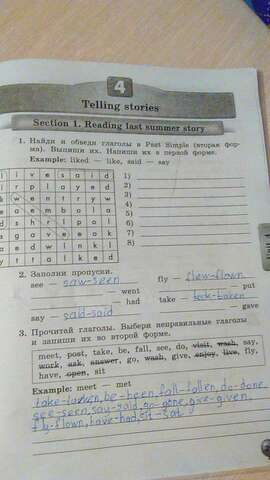 4
Telling stories
Section 1. Reading last summer story
1. Найди и обведи глаголы в Past Simple (вторая фор-
ма). Выпиши их. Напиши их в первой форме.
Example: liked — like, said — say
l i v e s a i d 1)
i r p l a y e d 2)
k w e n t r y w 3)
e a e m b o l a 4)
d s h r l p o l 5)
g a v e e o k 6)
a e d w i n k l 7)
y t t a l k e d 8)
2. Заполни пропуски.
see — saw-seen fly — flew-flown
— went — put
— had take — took-taken
say — said-said — gave
3. Прочитай глаголы. Выбери неправильные глаголы
и запиши их во второй форме.
meet, post, take, be, fall, see, do, visit, wash, say,
work, ask, answer, go, wash, give, enjoy, live, fly,
have, open, sit
Example: meet — met
take-taken, be-been, fall-fallen, do-done,
see-seen, say-said, go-gone, give-given,
fly-flown, have-had, sit-sat